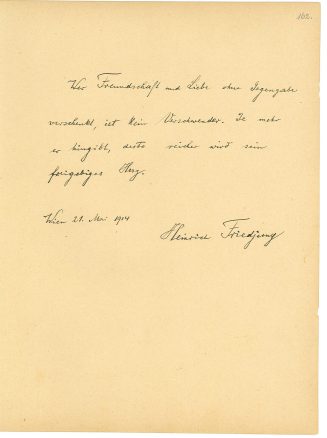 162.
Wer Freundschaft und Liebe ohne Gegengabe
verschenkt, ist kein Verschwender. Je mehr
er hingibt, desto reicher wird sein
freigebiges Herz.
Wien 21. Mai 1904
Heinrich Friedjung